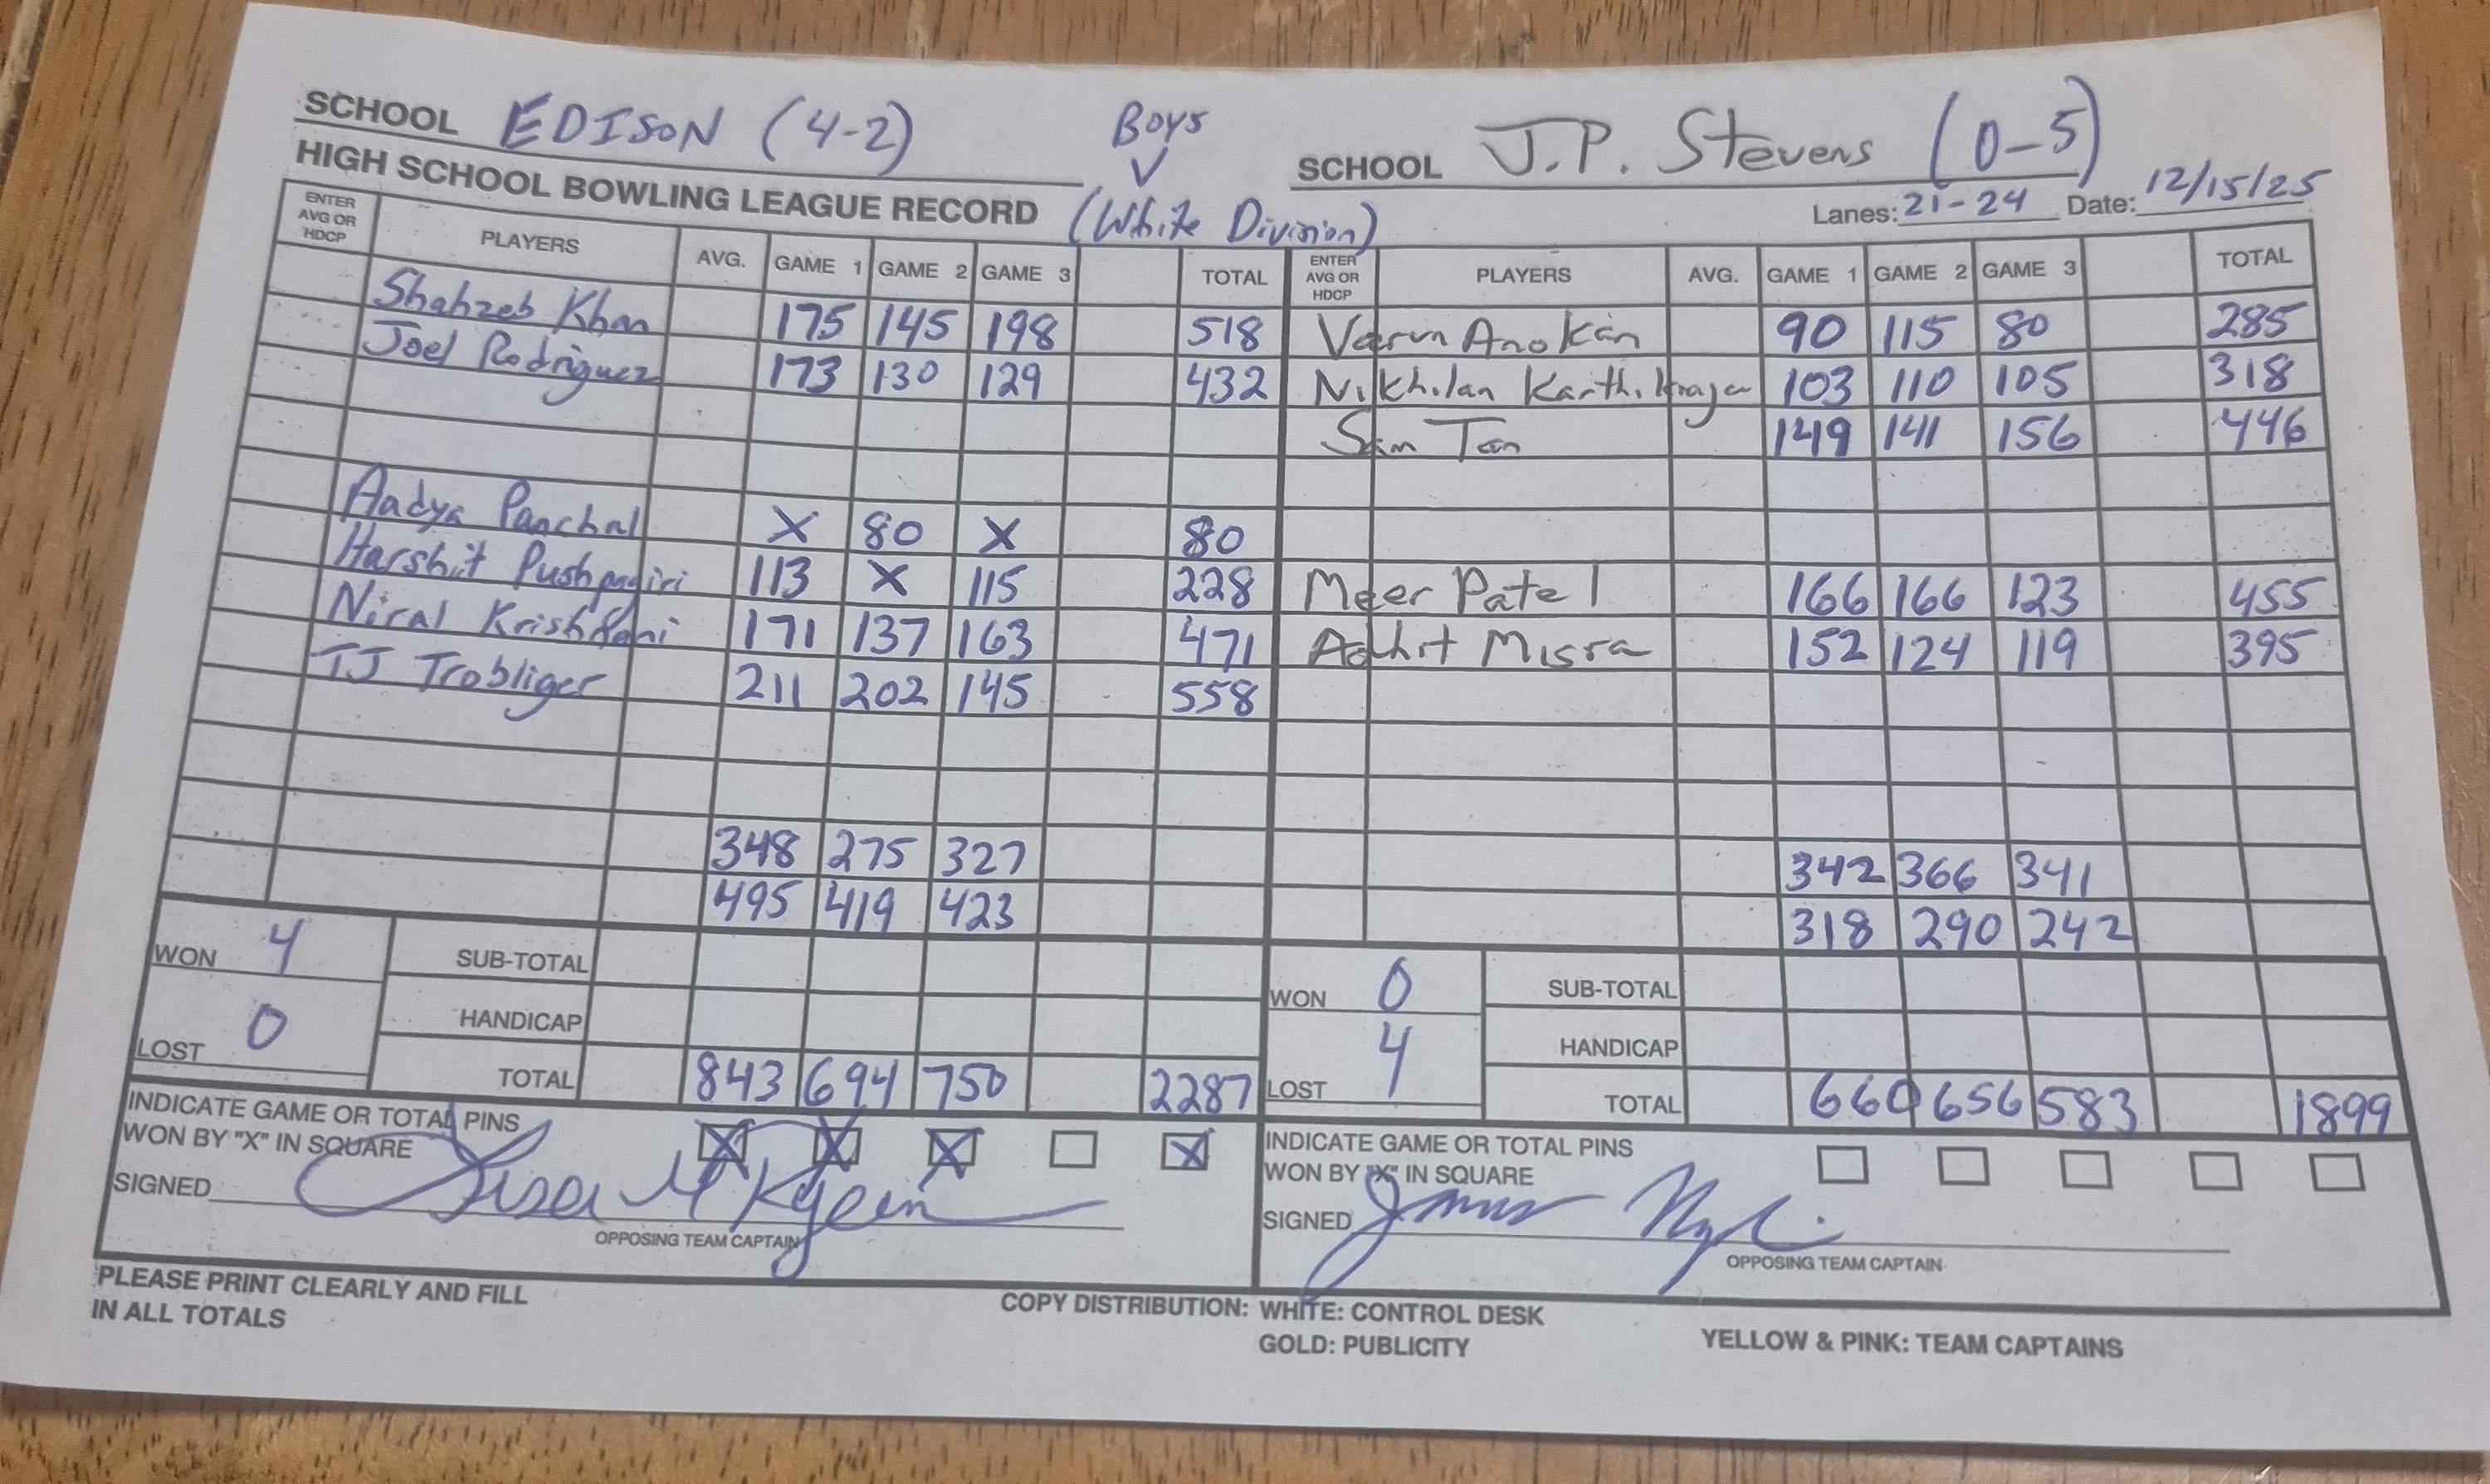 SCHOOL EDISON (4-2) Boys V SCHOOL J.P. Stevens (0-5)
HIGH SCHOOL BOWLING LEAGUE RECORD (White Division) Lanes: 21-24 Date: 12/15/25
ENTER AVG OR HDCP PLAYERS AVG. GAME 1 GAME 2 GAME 3 TOTAL ENTER AVG OR HDCP PLAYERS AVG. GAME 1 GAME 2 GAME 3 TOTAL
Shahzeb Khan 175 145 198 518 Varun Anokan 90 115 80 285
Joel Rodriguez 173 130 129 432 Nikhilan 103 110 105 318
Sam Tan 149 141 156 446
Aadya Panchal X 80 X 80
Harshit Pushpagiri 113 X 115 228 Meer Patel 166 166 123 455
Niral Krishnani 171 137 163 471 Adhit Misra 152 124 119 395
TJ Trobliger 211 202 145 558
348 275 327 342 366 341
495 419 423 318 290 242
WON 4 SUB-TOTAL WON 0 SUB-TOTAL
LOST 0 HANDICAP LOST 4 HANDICAP
TOTAL 843 694 750 2287 TOTAL 660 656 583 1899
INDICATE GAME OR TOTAL PINS WON BY "X" IN SQUARE X X X X INDICATE GAME OR TOTAL PINS WON BY "X" IN SQUARE
SIGNED Lisa SIGNED James
OPPOSING TEAM CAPTAIN OPPOSING TEAM CAPTAIN
PLEASE PRINT CLEARLY AND FILL IN ALL TOTALS
COPY DISTRIBUTION: WHITE: CONTROL DESK
GOLD: PUBLICITY YELLOW & PINK: TEAM CAPTAINS